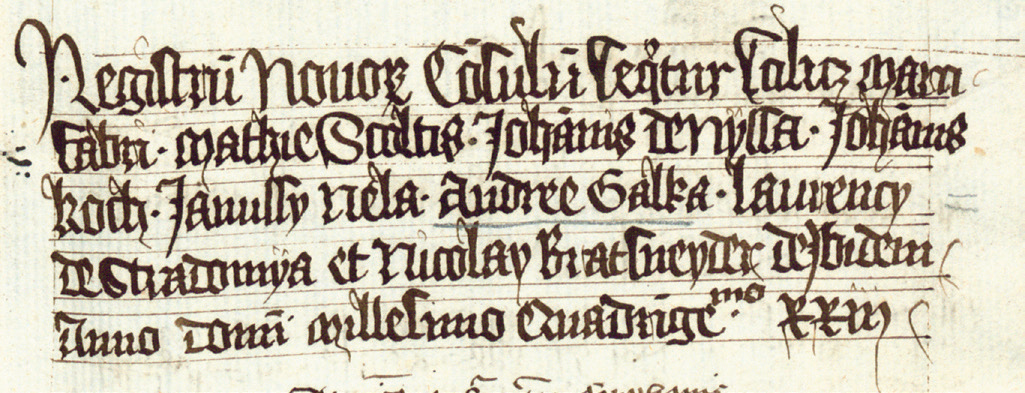 Registrū Novorꝝ Cōsulū seqͥtur scilicz Marci
fabri · Mathie Scoltis · Johānis de Nyssa · Johānis
Koch · Janussy Nela · Andree Galka · Laurency
de Stradomya et Nicolay Bratsneyder de Ibidem
Anno domī Millesimo Quadringeᵐᵒ · XXIII